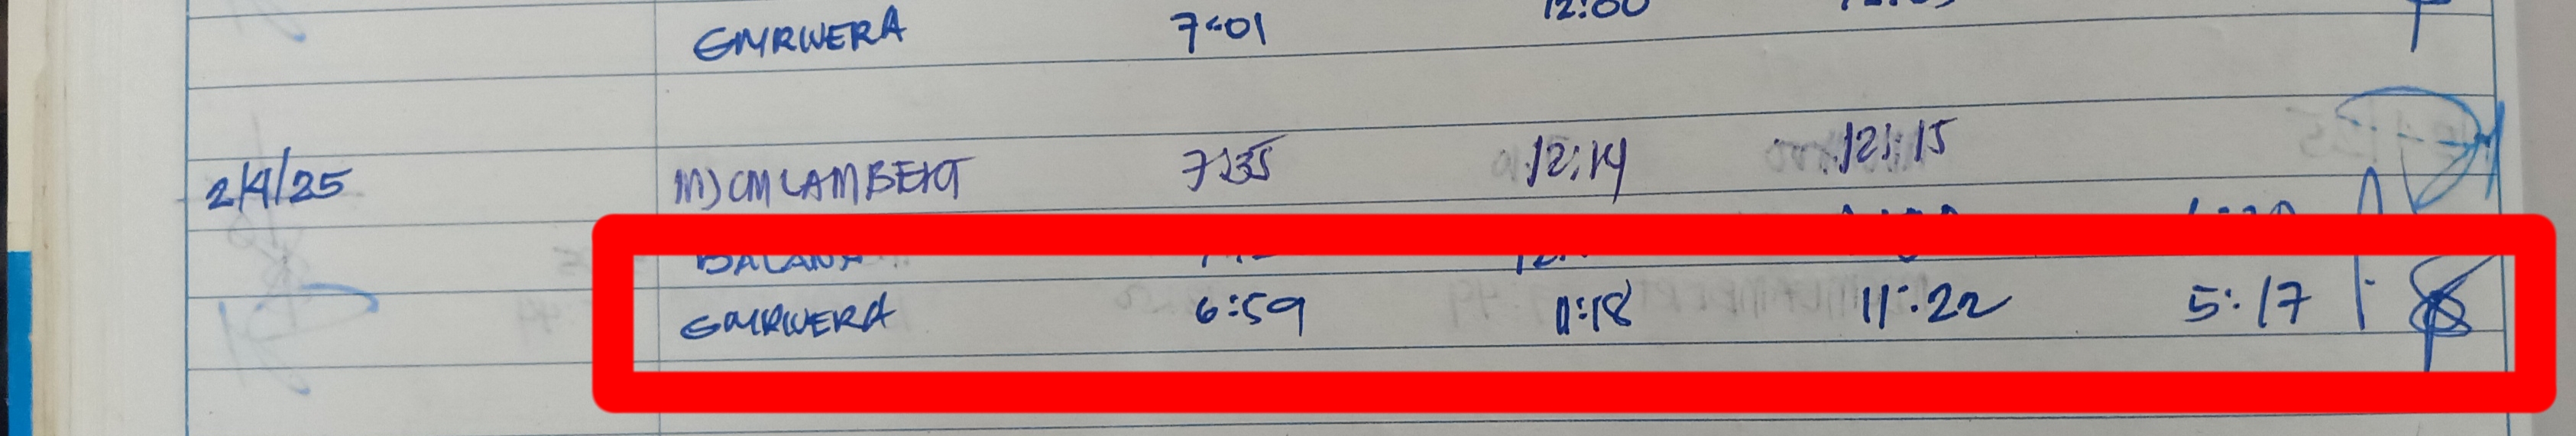 GMRIVERA 7:01 12:00
2/4/25 MJCMLAMBERT 7:35 12:14 12:15
BALANA
GMRIVERA 6:59 11:18 11:22 5:17